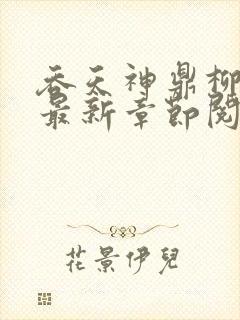 吞天神鼎柳
最新章節閱
花景伊兒